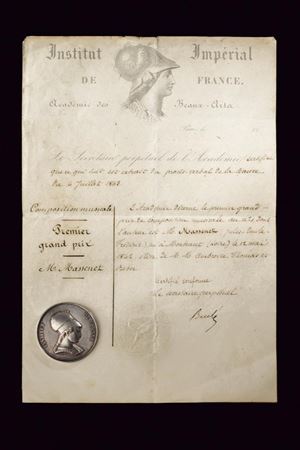 Institut Impérial
DE FRANCE.
Académie des Beaux-Arts
Le Secrétaire perpétuel de l'Académie certifie
que ce qui suit est extrait du procès-verbal de la séance
du 4 Juillet 1863.
Composition musicale
Premier
grand prix
Mr. Massenet
L'Académie décerne le premier grand
prix de composition musicale au
l'auteur est Mr. Massenet Jules Emile
Frédéric né à Montaud (Loire) le 12 mai
1842, élève de M. M. Ambroise Thomas et
Certifié conforme
Le secrétaire perpétuel
Beulé